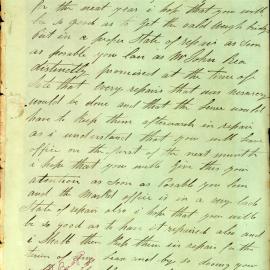 for the next year i hope that you will
be so good as to get the said weigh bridge
put in a proper State of repair as soon
as posable you can as Mr John Rea
distinctly promised at the time of
Sale that every repairs that was necessary
would be done and that the lesee would
have to keep them afterwards in repair
as i understand that you will leave
office on the first of the next month
i hope that you will give this your
attention as soon as posable you can
and the Market office is in a very bad
State of repair also i hope that you will
be so good as to have it repaired also and
i shall then keep them in repair for the
term of my lease and by so doing your